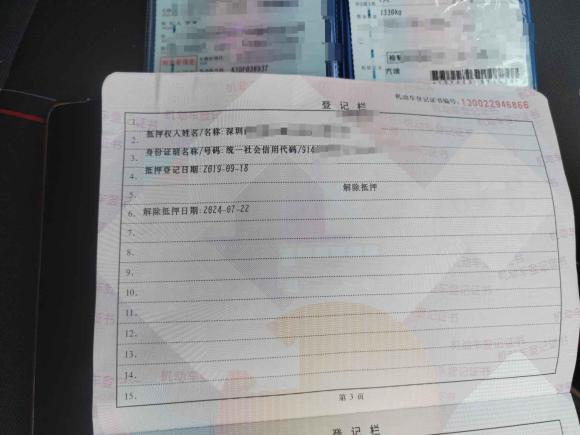 1330kg
汽油
登记栏
机动车登记证书编号: 130022946866
1.
抵押权人姓名/名称: 深圳
2.
身份证明名称/号码: 统一社会信用代码/914
3.
抵押登记日期: 2019-09-18
4.
解除抵押
5.
解除抵押日期: 2024-07-22
6.
7.
8.
9.
10.
11.
12.
13.
14.
15.
第 3 页
登记栏